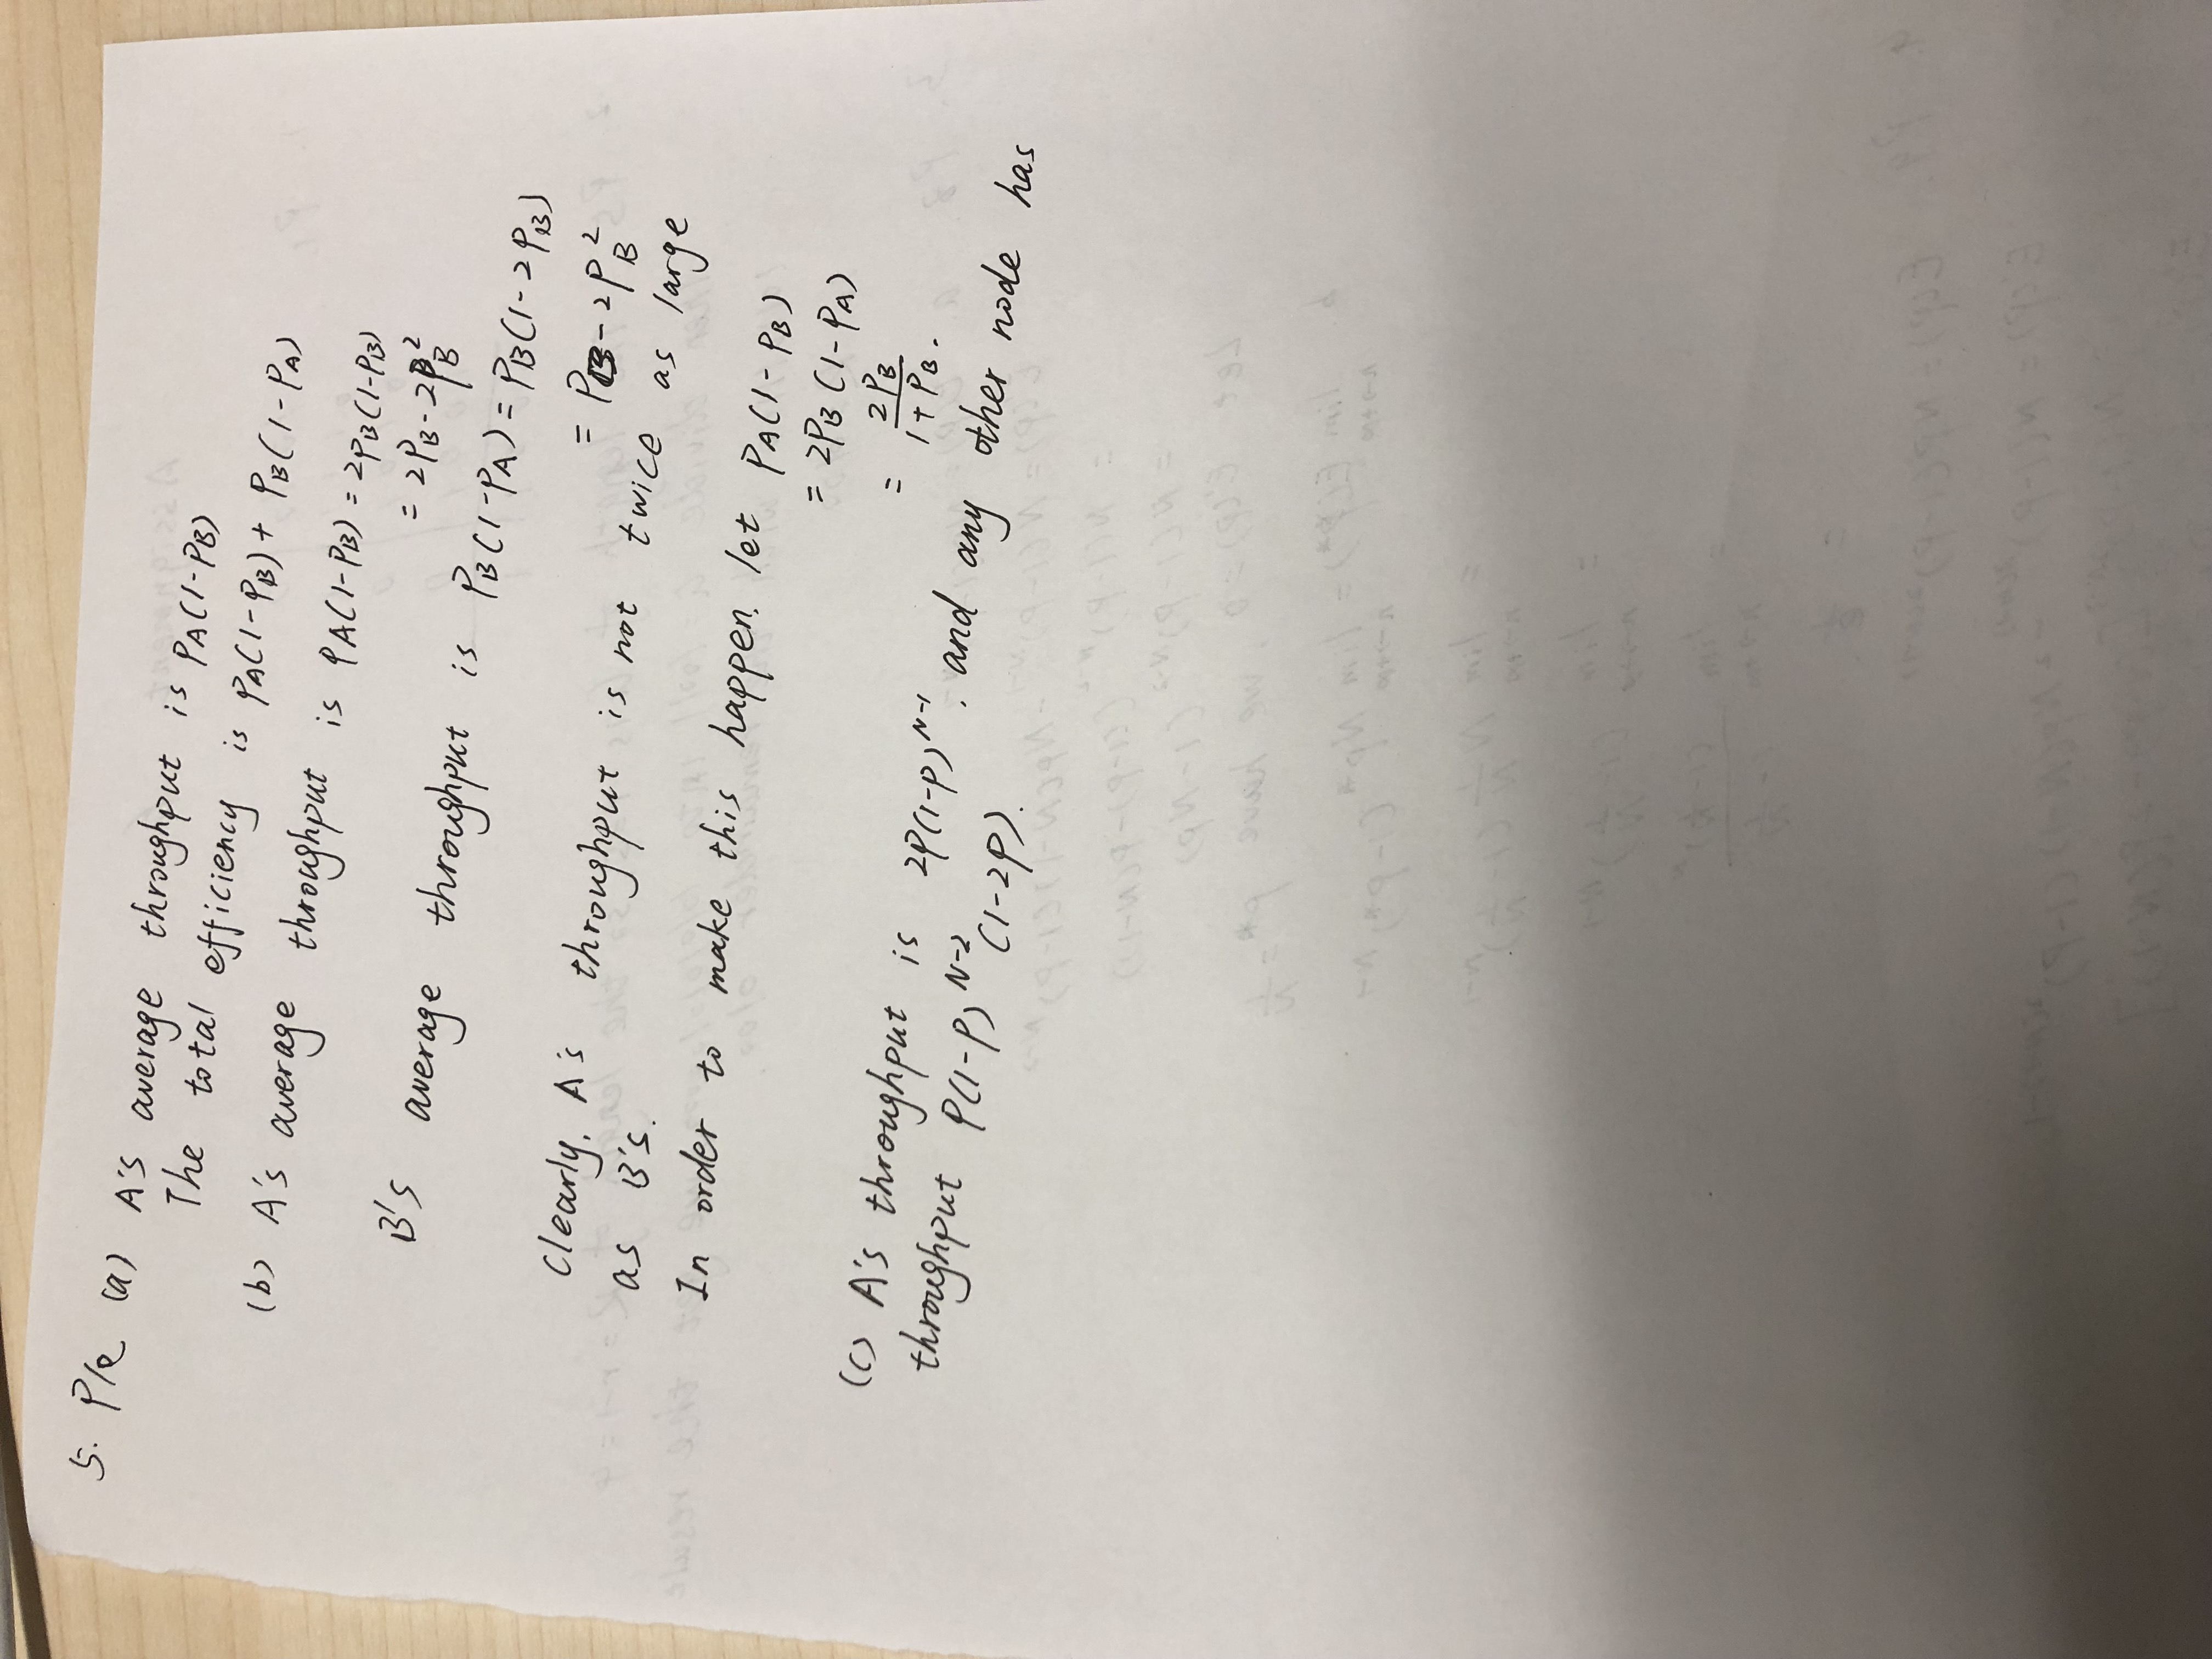 5. P10 (a) A's average throughput is PA(1-PB)
The total efficiency is PA(1-PB) + PB(1-PA)
(b) A's average throughput is PA(1-PB) = 2PB(1-PB)
= 2PB - 2PB²
B's average throughput is PB(1-PA) = PB(1-2PB)
= PB - 2PB²
Clearly, A's throughput is not twice as large
as B's.
In order to make this happen, let PA(1-PB)
= 2PB(1-PA)
= 2PB / 1+PB.
(c) A's throughput is 2P(1-P)^N-1, and any other node has
throughput P(1-P)^N-2 (1-2P).